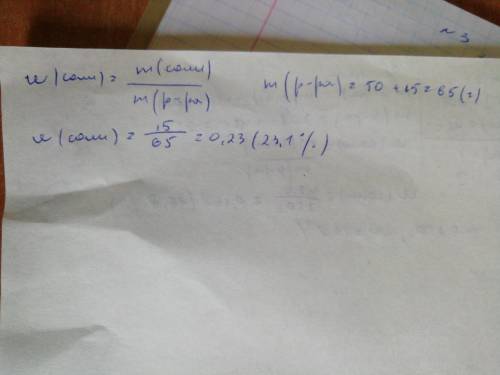 ~ 3
w (соли) = m(соли) / m(р-ра) m(р-ра) = 50 + 15 = 65(г)
w (соли) = 15 / 65 = 0,23 (23,1%)